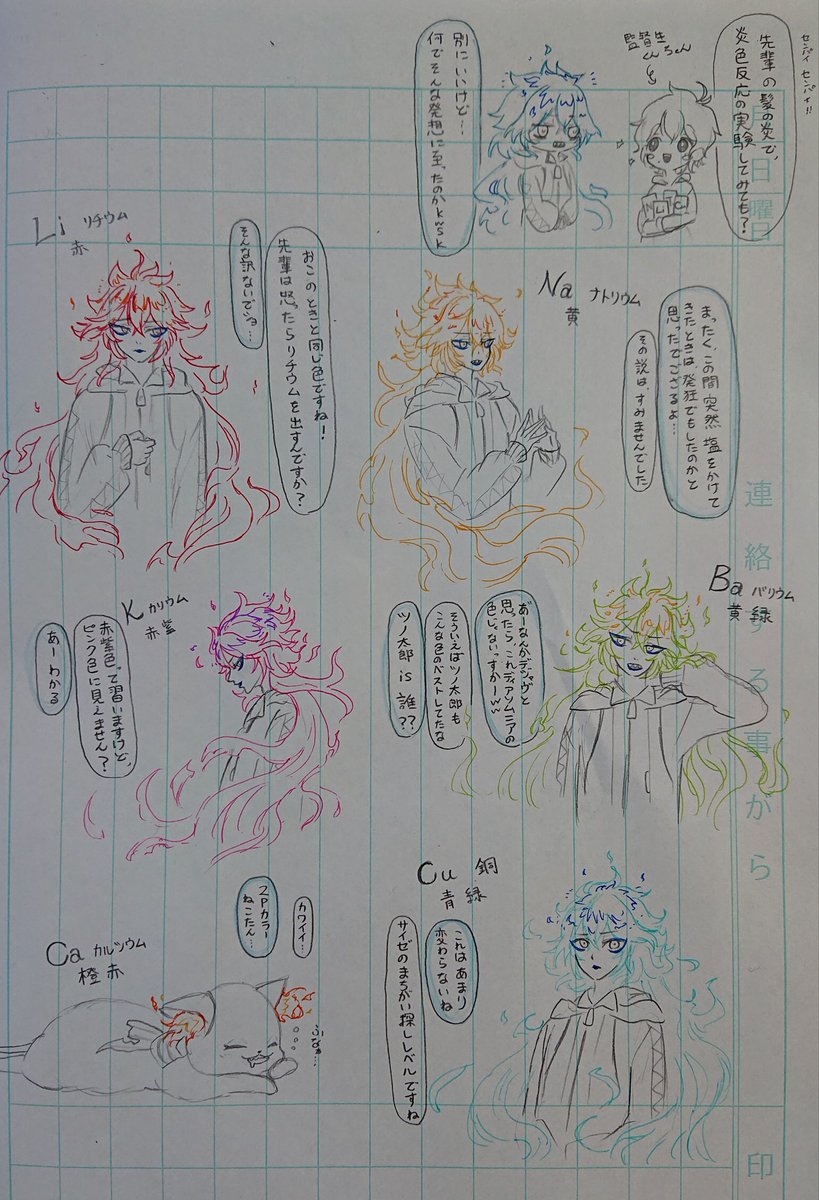 センパイ センパイ!!
先輩の髪の炎で、
炎色反応の実験してみても?
監督生
くん
ちゃん
別にいいけど…
何でそんな発想に至ったのかkwsk
Li リチウム
赤
おこのときと同じ色ですね!
先輩は怒ったらリチウムを出すんですか?
そんな訳ないでショ…
Na ナトリウム
黄
まったく、この間突然塩をかけて
きたときは、発狂でもしたのかと
思ったでござるよ…
その説は、すみませんでした
K カリウム
赤紫
赤紫色って習いますけど、
ピンク色に見えません?
あーわかる
Ba バリウム
黄緑
あーなんかデジャヴと
思ったら、これディアソムニアの
色じゃないっすかーww
そういえばツノ太郎も
こんな色のベストしてたな
ツノ太郎 is 誰??
Cu 銅
青緑
これはあまり
変わらないね
サイゼのまちがい探しレベルですね
Ca カルシウム
橙赤
カワイイ…
2Pカラー
ねこたん…
ふなぁ…
日
曜日
連絡する事がら
印